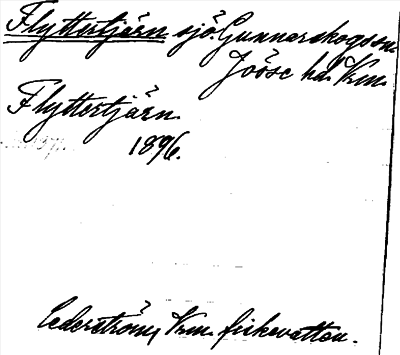 Flyttertjärn sjö. Gunnarskogs sn.
Jösse hd. Vrm.
Flyttertjärn.
1896.
Cederström, Vrm. fiskevatten.